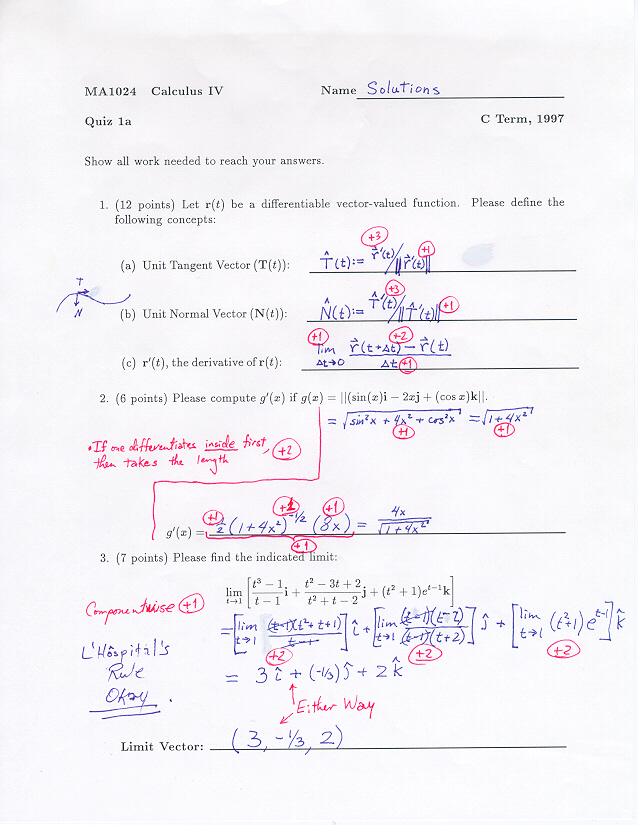 MA1024 Calculus IV Name Solutions
Quiz 1a C Term, 1997
Show all work needed to reach your answers.
1. (12 points) Let r(t) be a differentiable vector-valued function. Please define the
following concepts:
+3 +1
(a) Unit Tangent Vector (T(t)): T̂(t):= r⃗'(t)/||r⃗'(t)||
T
N
+3 +1
(b) Unit Normal Vector (N(t)): N̂(t):= T̂'(t)/||T̂'(t)||
+1 +2
(c) r'(t), the derivative of r(t): lim Δt→0 r⃗(t+Δt) − r⃗(t) / Δt +1
2. (6 points) Please compute g'(x) if g(x) = ||(sin(x)i − 2xj + (cos x)k||.
= √(sin²x + 4x² + cos²x) = √(1+4x²)
+1 +1
• If one differentiates inside first,
then takes the length +2
+1 +1
g'(x) = 1/2 (1+4x²)^(-1/2) (8x) = 4x/√(1+4x²)
+1
3. (7 points) Please find the indicated limit:
lim t→1 [ (t³ − 1)/(t − 1) i + (t² − 3t + 2)/(t² + t − 2) j + (t² + 1)e^(t−1) k ]
Componentwise +1
= [lim t→1 (t-1)(t²+t+1)/(t-1)] î + [lim t→1 (t-1)(t-2)/(t-1)(t+2)] ĵ + [lim t→1 (t²+1)e^(t-1)] k̂
+2 +2 +2
L'Hôspital's
Rule
Okay.
= 3î + (-1/3)ĵ + 2k̂
Either Way
Limit Vector: (3, -1/3, 2)